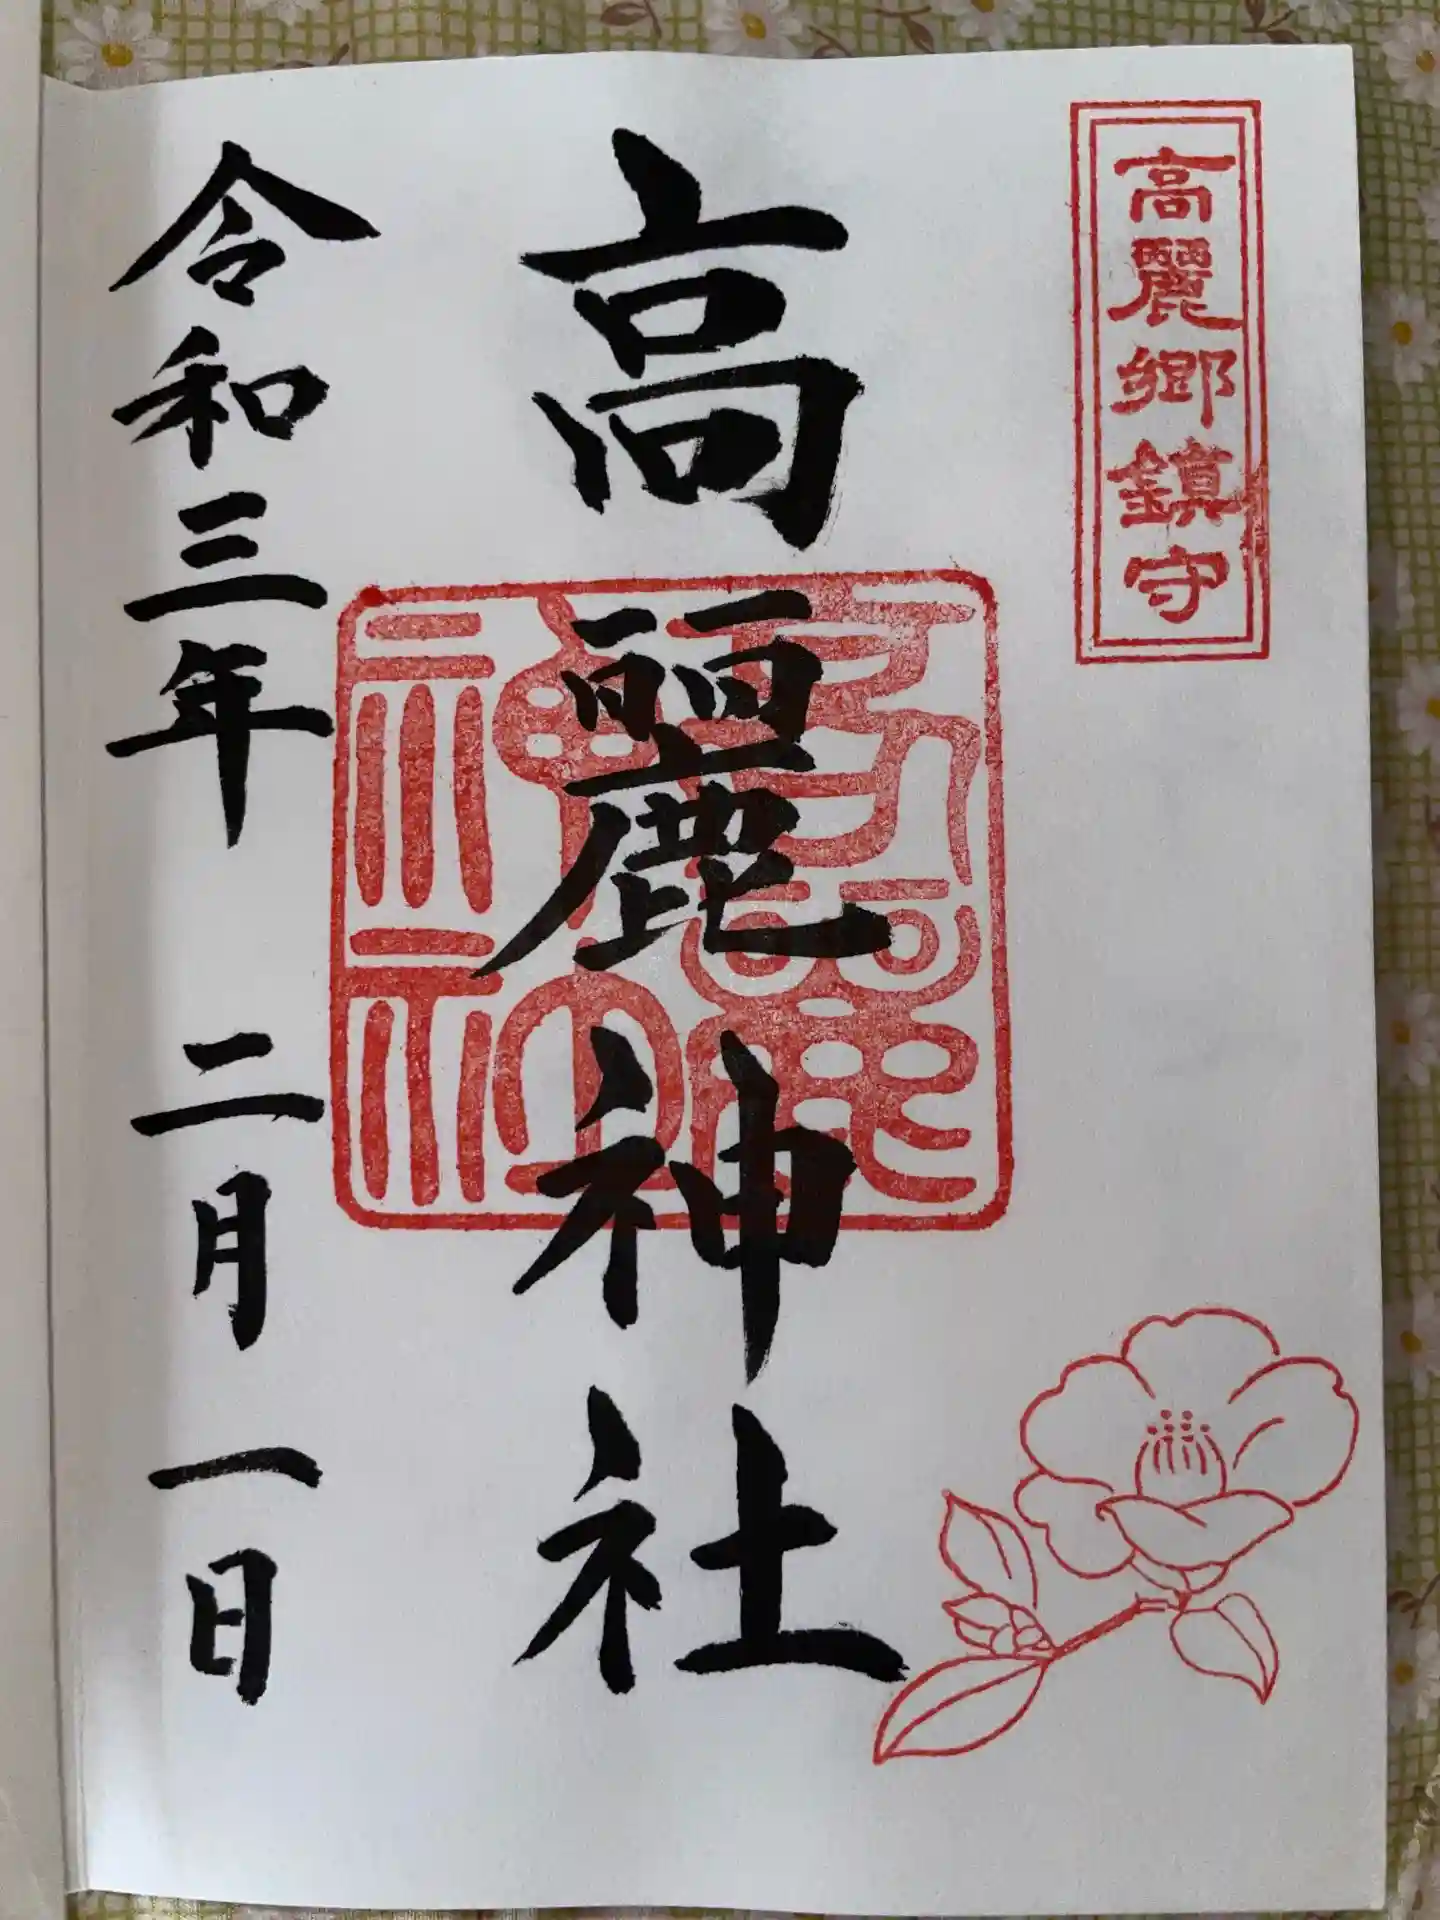 高麗郷鎮守
高麗神社
高麗神社
令和三年 二月 一日